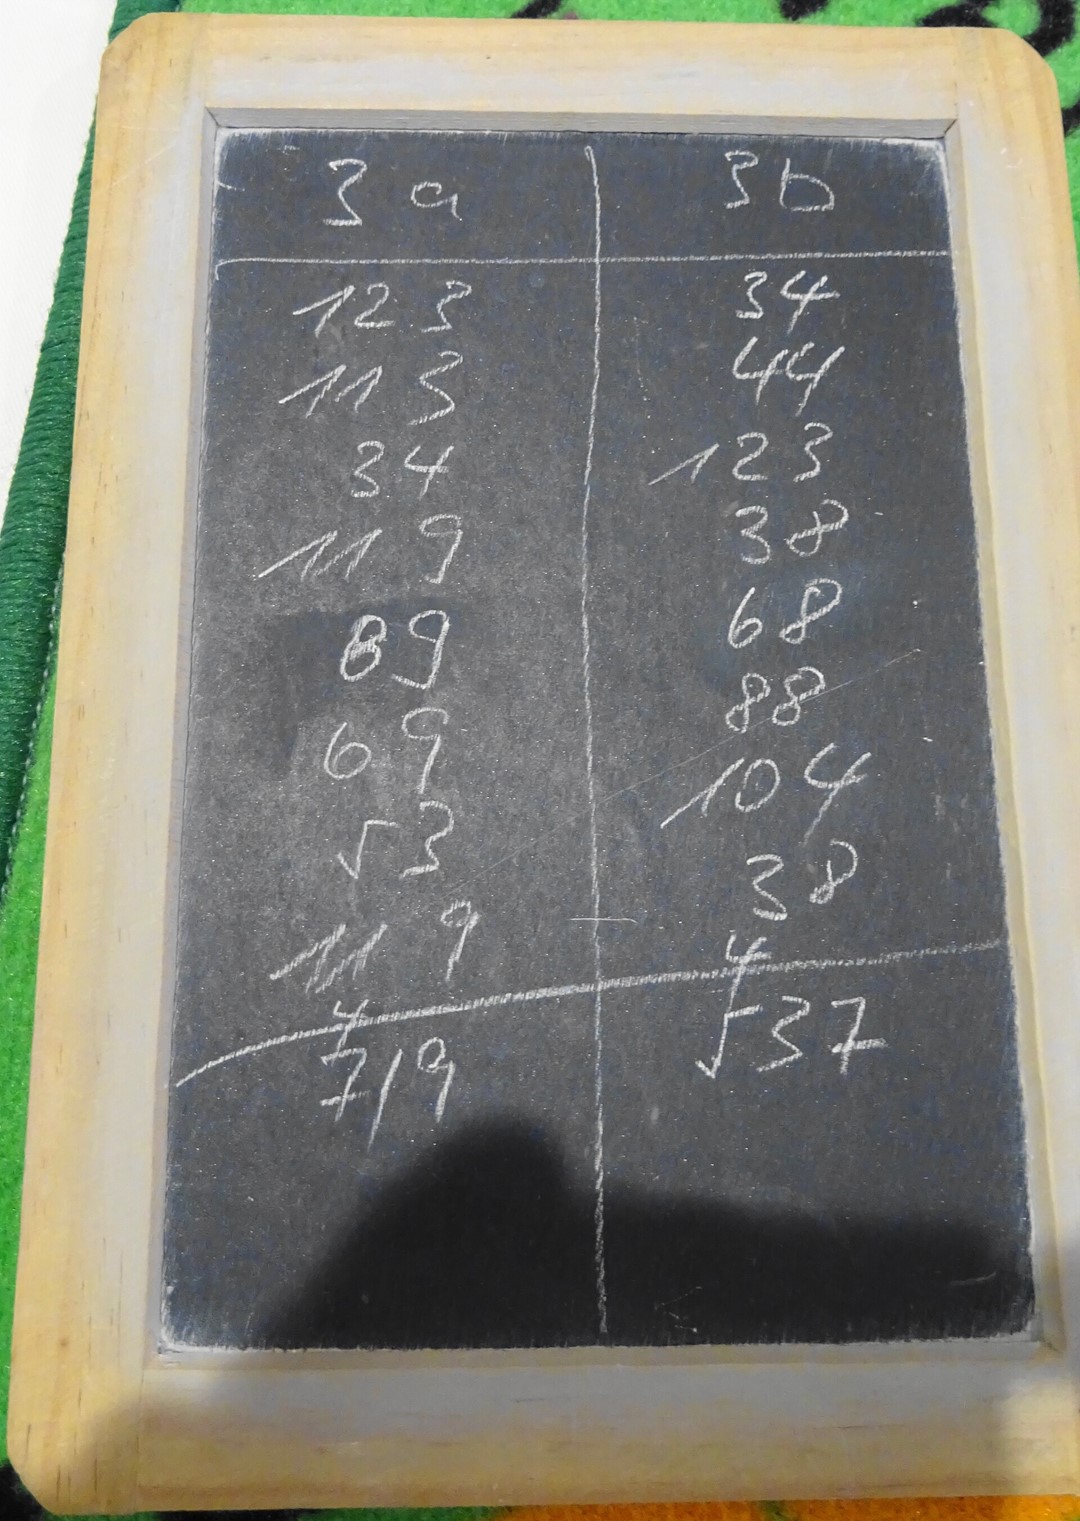 3a
123
113
34
119
89
69
53
119
4
719
3b
34
44
123
38
68
88
104
38
4
537